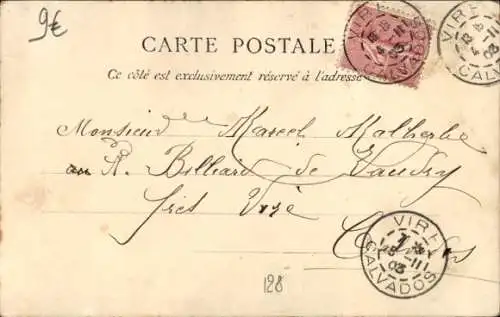 9€
CARTE POSTALE
Ce côté est exclusivement réservé à l'adresse
VIRE
CALVADOS
VIRE
CALVADOS
03
Monsieur Marcel Malherbe
au R. Billard de Vaudry
près Vire
VIRE
03
CALVADOS
128